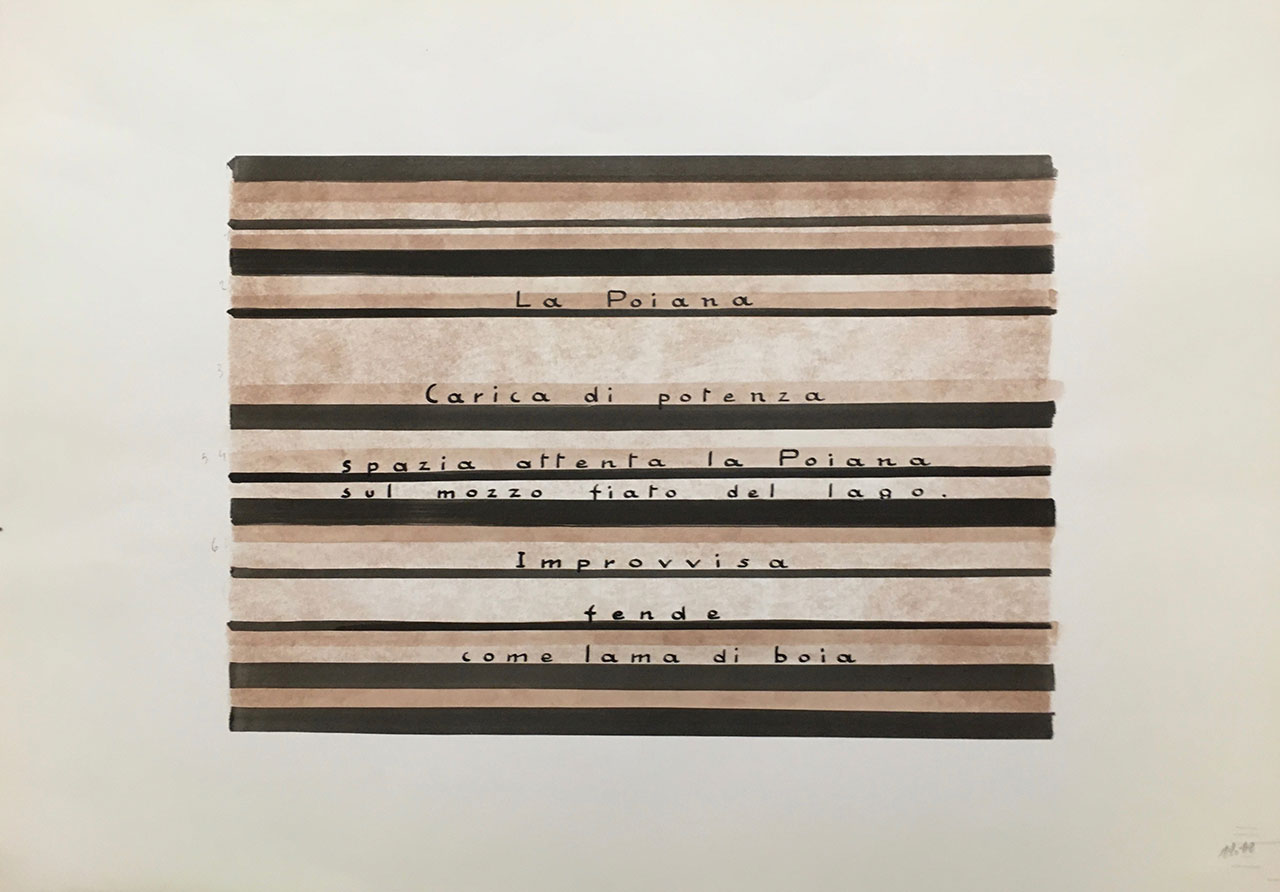 La Poiana
Carica di potenza
spazia attenta la Poiana
sul mozzo fiato del lago.
Improvvisa
fende
come lama di boia